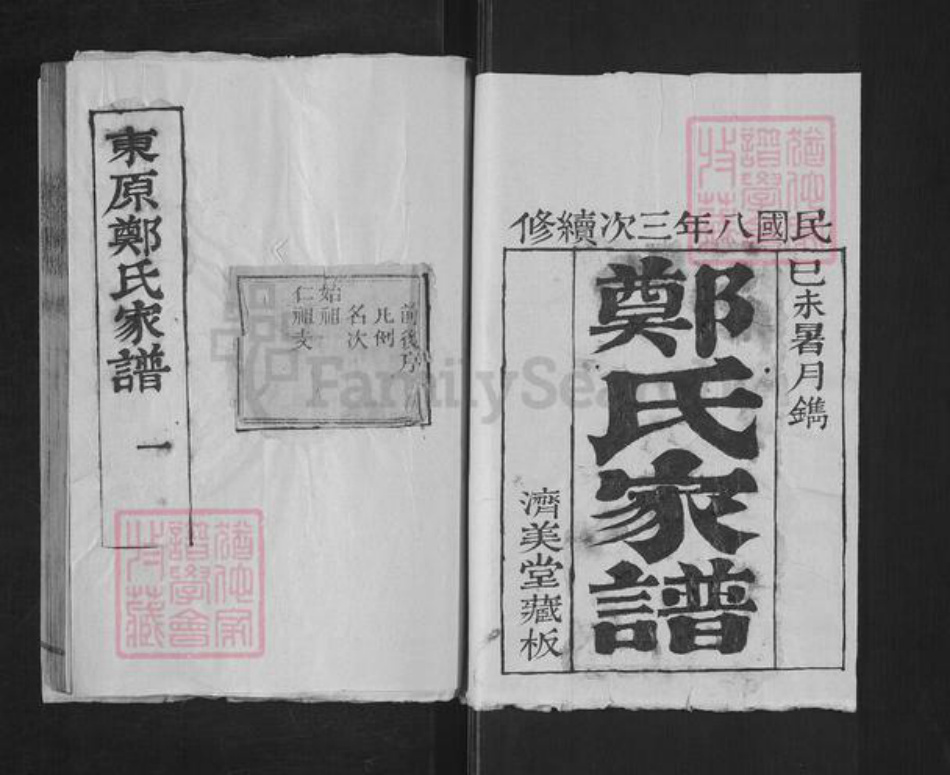 民國八年三次續修
己未暑月鐫
鄭氏家譜
濟美堂藏板
東原鄭氏家譜 一
前後序
凡例
名次
始祖
仁祖支
FamilySearch
譜學會
特藏